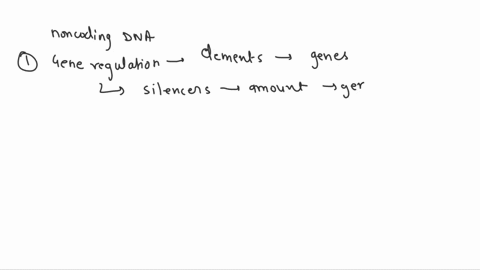 noncoding DNA
① Gene regulation → elements → genes
↳ silencers → amount → ger